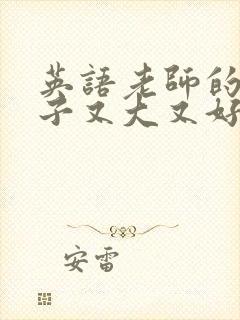 英語老師的
子又大又好
安雷